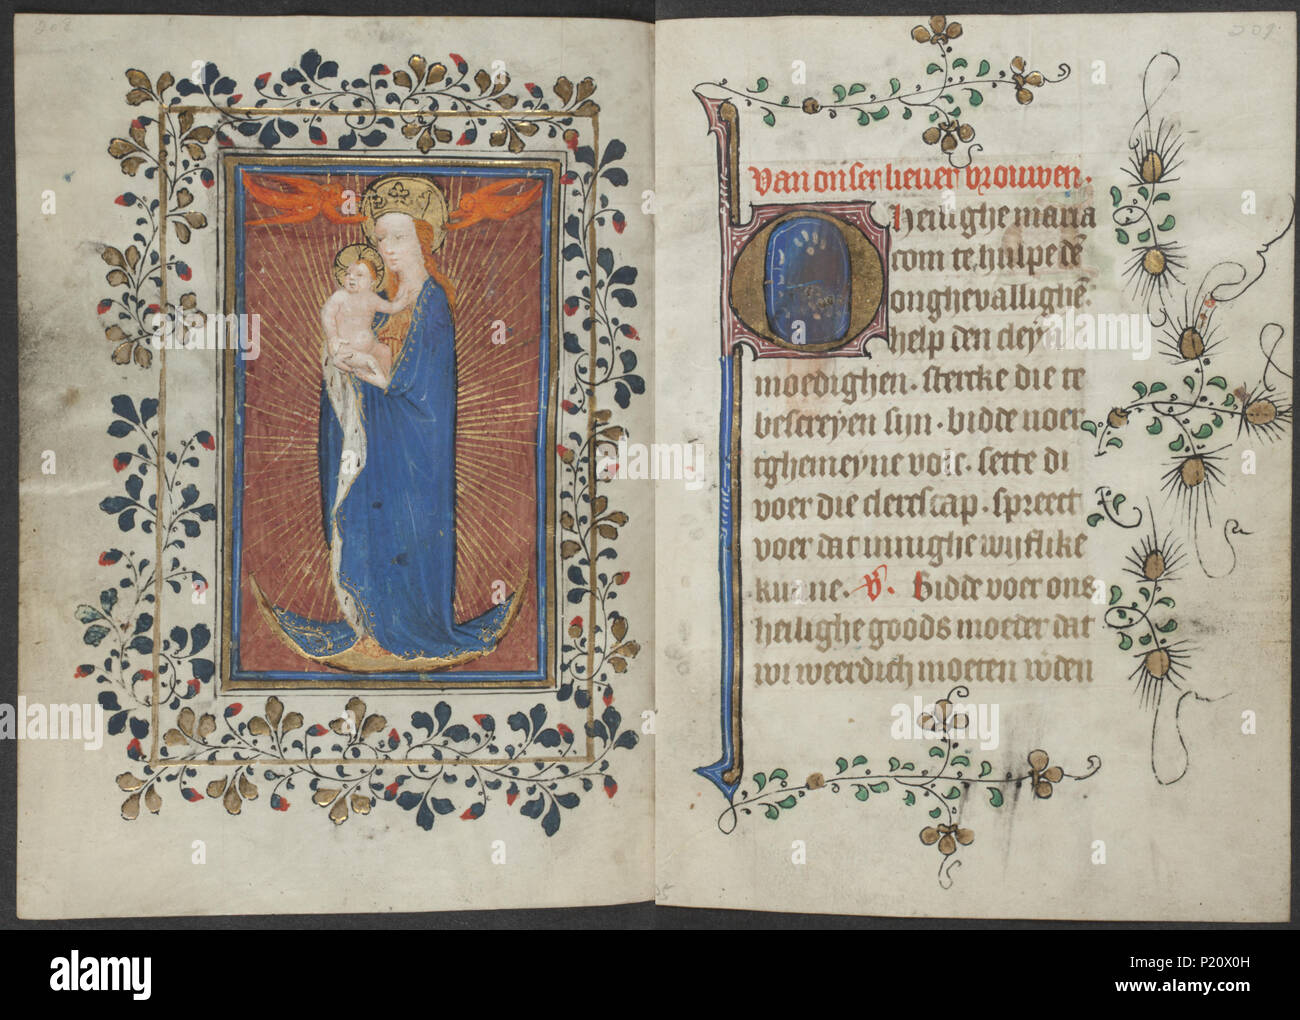 208
209
van onser liever vrouwen.
O heilighe maria
com te hulpe dē
onghevallighē.
help den cleyn
moedighen. stercke die te
bescreyen sijn. bidde voer
tghemeyne volc. sette di
voer die clerscap. spreect
voer dat innighe wijflike
kunne. V̄. Bidde voer ons
heilighe goods moeder dat
wi weerdich moeten wden
alamy stock photo
alamy
Image ID: P20X0H
www.alamy.com